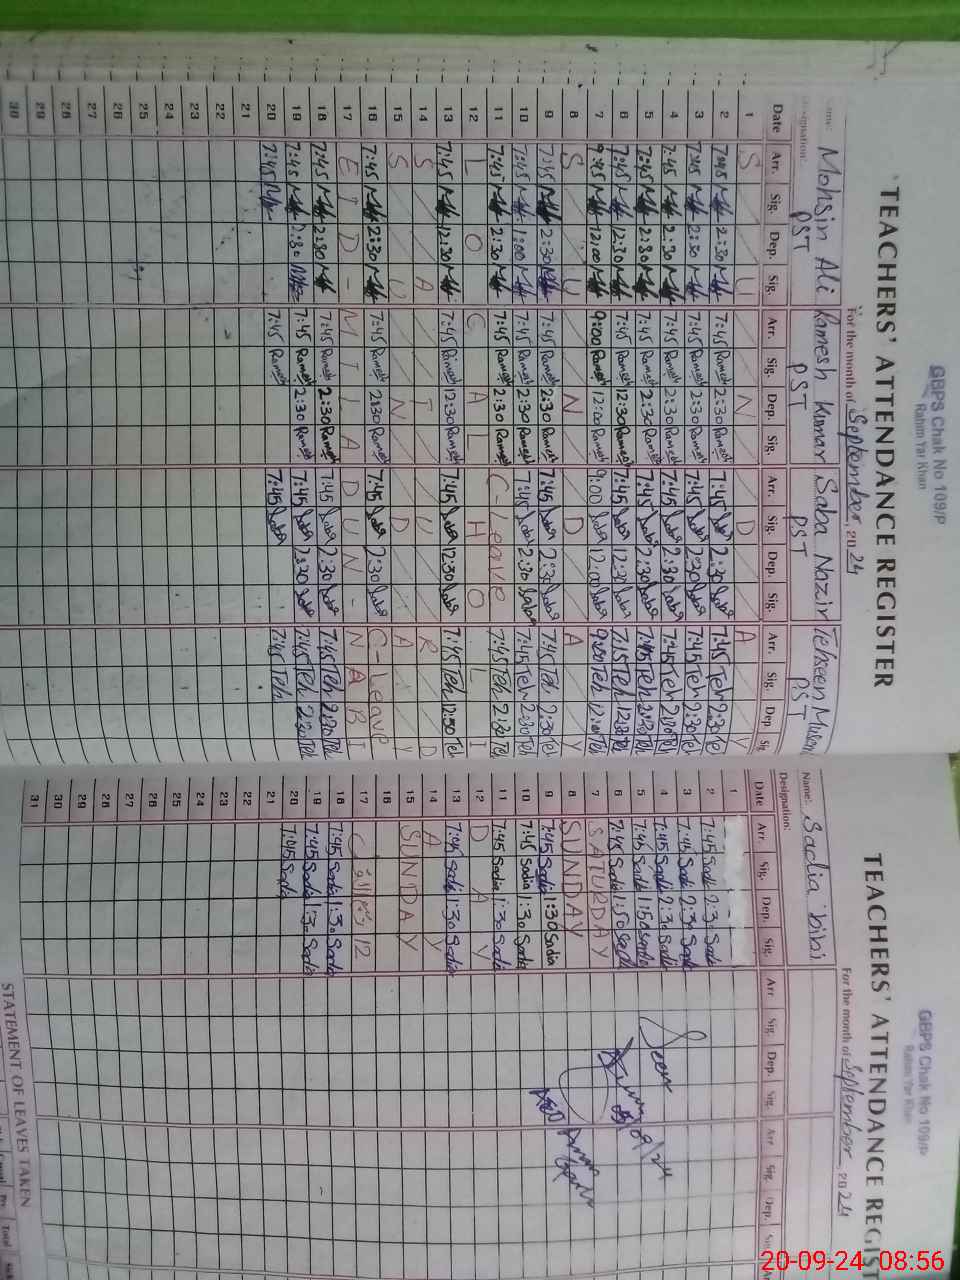 GBPS Chak No 109/P
Rahim Yar Khan
TEACHERS' ATTENDANCE REGISTER
For the month of September, 2024
Name: Mohsin Ali Ramesh Kumar Saba Nazir Tehseen
Designation: PST PST PST PST
Date Arr. Sig. Dep. Sig. Arr. Sig. Dep. Sig. Arr. Sig. Dep. Sig. Arr. Sig. Dep. Sig
1 S U N D A Y
2 7:45 2:30 7:45 Ramesh 2:30 Ramesh 7:45 Saba 2:30 Saba 7:45 Teh 2:30 Te
3 7:45 2:30 7:45 Ramesh 2:30 Ramesh 7:45 Saba 2:30 Saba 7:45 Teh 2:30 Teh
4 7:45 2:30 7:45 Ramesh 2:30 Ramesh 7:45 Saba 2:30 Saba 7:45 Teh Teh
5 7:45 2:30 7:45 Ramesh 2:30 Ramesh 7:45 Saba 2:30 Saba 7:45 Teh 2:30 Teh
6 7:45 12:30 7:45 Ramesh 12:30 Ramesh 7:45 Saba 12:30 Saba Teh 12:30 Teh
7 12:00 9:00 Ramesh 12:00 Ramesh 9:00 Saba 12:00 Saba 9:00 Teh 12:00 Teh
8 S U N D A Y
9 7:45 2:30 7:45 Ramesh 2:30 Ramesh 7:45 Saba 2:30 Saba 7:45 Teh 2:30 Teh
10 7:45 1:00 7:45 Ramesh 2:30 Ramesh 7:45 Saba 2:30 Saba 7:45 Teh 2:30 Teh
11 7:45 2:30 7:45 Ramesh 2:30 Ramesh C-Leave 7:45 Teh 2:30 Teh
12 L O C A L H O L I
13 7:45 12:30 7:45 Ramesh 12:30 Ramesh 7:45 Saba 12:30 Saba 7:45 Teh 12:30 Teh
14 S A T U R D
15 S U N D A Y
16 7:45 2:30 7:45 Ramesh 2:30 Ramesh 7:45 Saba 2:30 Saba C-Leave
17 E I D - M I L A D U N - N A B I
18 7:45 2:30 7:45 Ramesh 2:30 Ramesh 7:45 Saba 2:30 Saba 7:45 Teh 2:30 Teh
19 7:45 2:30 7:45 Ramesh 2:30 Ramesh 7:45 Saba 2:30 Saba 7:45 Teh 2:30 Teh
20 7:45 7:45 Ramesh 7:45 Saba 7:45 Teh
21
22
23
24
25
26
27
28
29
30
GBPS Chak No 109/P
Rahim Yar Khan
TEACHERS' ATTENDANCE REGIST
For the month of September, 2024
Name: Sadia bibi
Designation:
Date Arr. Sig. Dep. Sig. Arr Sig. Dep. Sig. Arr Sig. Dep. Sig.
1
2 7:45 Sadia 2:30 Sadia
3 7:45 Sadia 2:30 Sadia
4 7:45 Sadia 2:30 Sadia
5 7:45 Sadia 1:50 Sadia
6 7:45 Sadia 1:50 Sadia
7 SATURDAY
8 SUNDAY
9 7:45 Sadia 1:30 Sadia
10 7:45 Sadia 1:30 Sadia
11 7:45 Sadia 1:30 Sadia
12 D A Y
13 7:45 Sadia 1:30 Sadia
14 A Y
15 SUNDAY
16
17 12
18 7:45 Sadia 1:30 Sadia
19 7:45 Sadia 1:30 Sadia
20 7:45 Sadia
21
22
23
24
25
26
27
28
29
30
31
Seen
STATEMENT OF LEAVES TAKEN
Total
20-09-24 08:56